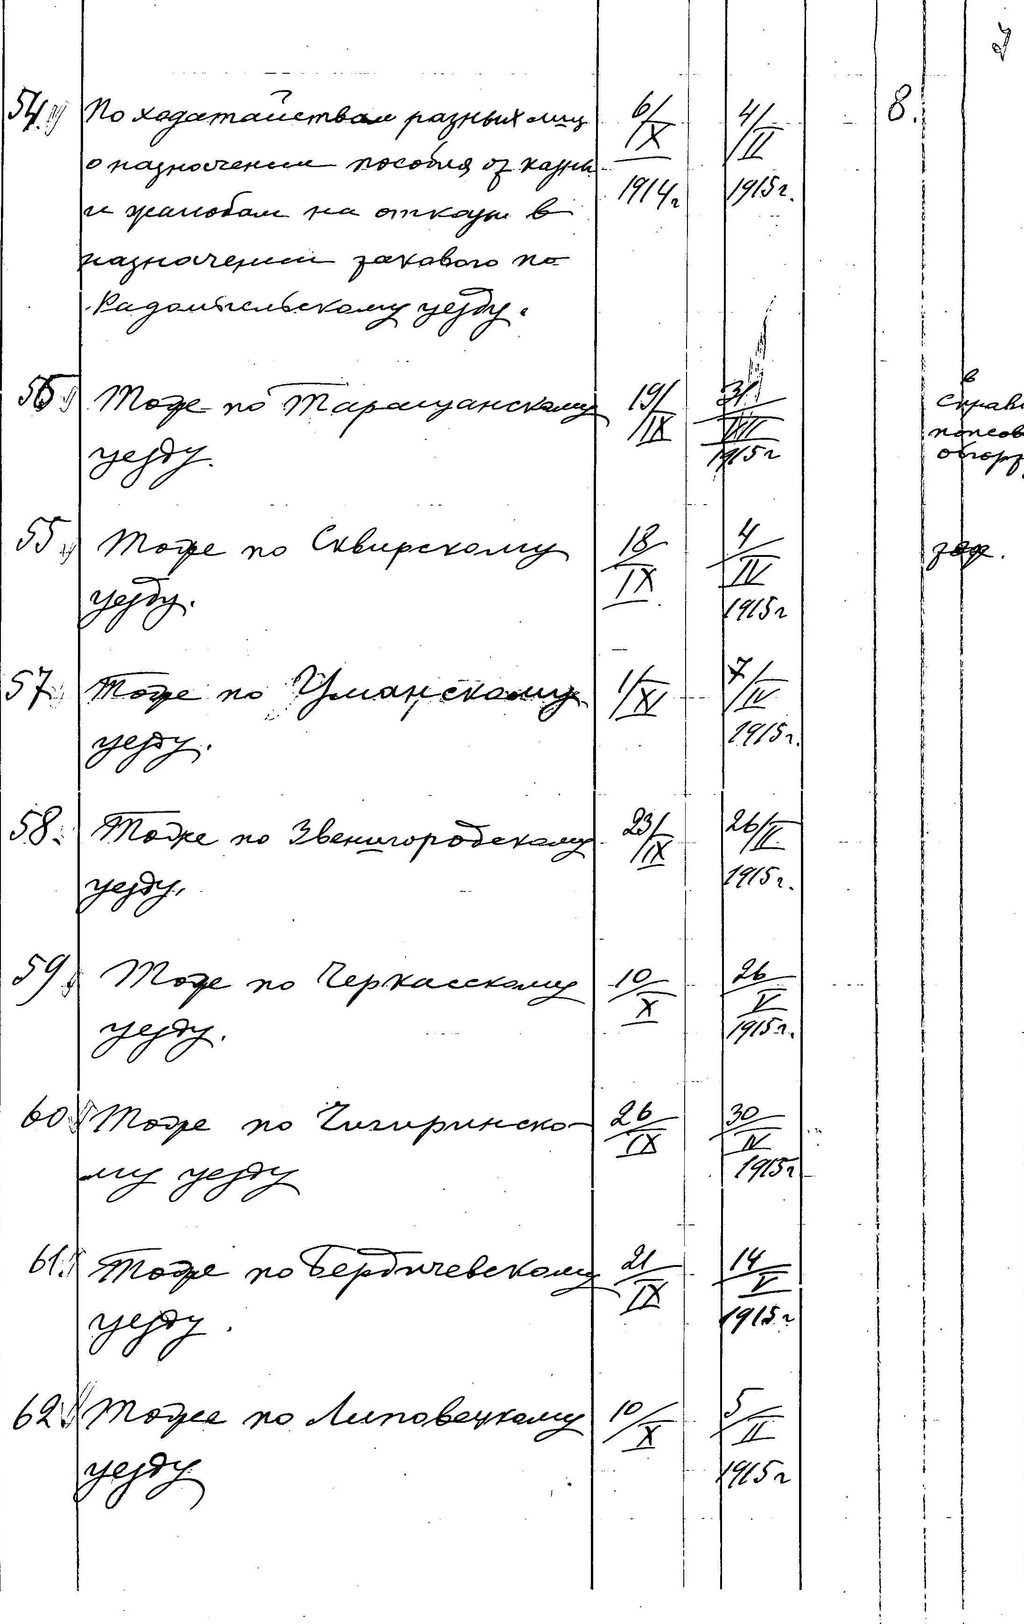 54. По ходатайствам разных лиц 6/IX 1914 г 4/II 1915 г. 8.
о назначении пособия от казны
и жалобам на отказы в
назначении такового по
Радомысльскому уезду.
56 Тоже по Таращанскому 19/IX 31/VIII 1915 г в
уезду.
55 Тоже по Сквирскому 18/IX 4/IV 1915 г
уезду.
57 Тоже по Уманскому 1/XI 7/IV 1915 г.
уезду.
58. Тоже по Звенигородскому 23/IX 26/II 1915 г.
уезду.
59 Тоже по Черкасскому 10/X 26/V 1915 г.
уезду.
60 Тоже по Чигиринско- 26/IX 30/IV 1915 г
му уезду
61. Тоже по Бердичевскому 21/IX 14/V 1915 г
уезду.
62 Тоже по Липовецкому 10/X 5/II 1915 г
уезду